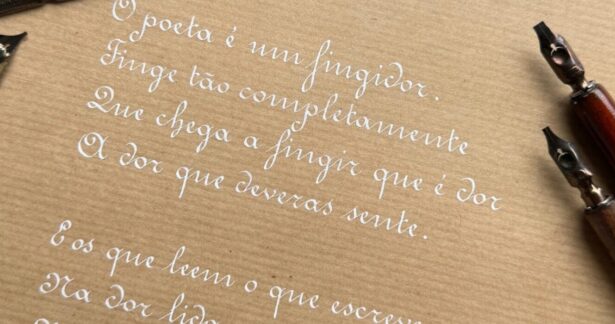 O poeta é um fingidor.
Finge tão completamente
Que chega a fingir que é dor
A dor que deveras sente.
E os que leem o que
Na dor lida